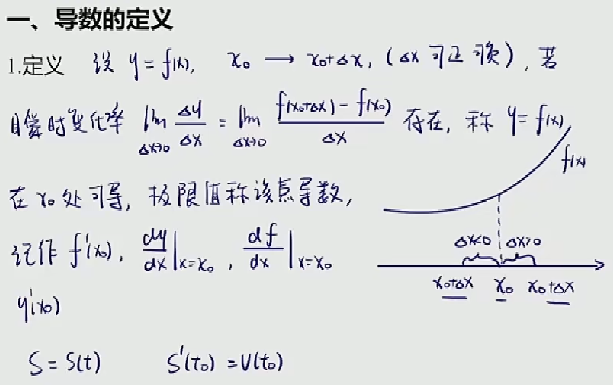 一、导数的定义
1.定义 设 y=f(x), x₀ → x₀+Δx, (Δx 可正可负), 若
瞬时变化率 lim_{Δx→0} Δy/Δx = lim_{Δx→0} (f(x₀+Δx)-f(x₀))/Δx 存在, 称 y=f(x)
在 x₀ 处可导, 极限值称该点导数,
记作 f'(x₀), dy/dx|x=x₀, df/dx|x=x₀
y'(x₀)
S=S(t) S'(t₀)=V(t₀)
f(x)
Δx<0 Δx>0
x₀+Δx x₀ x₀+Δx